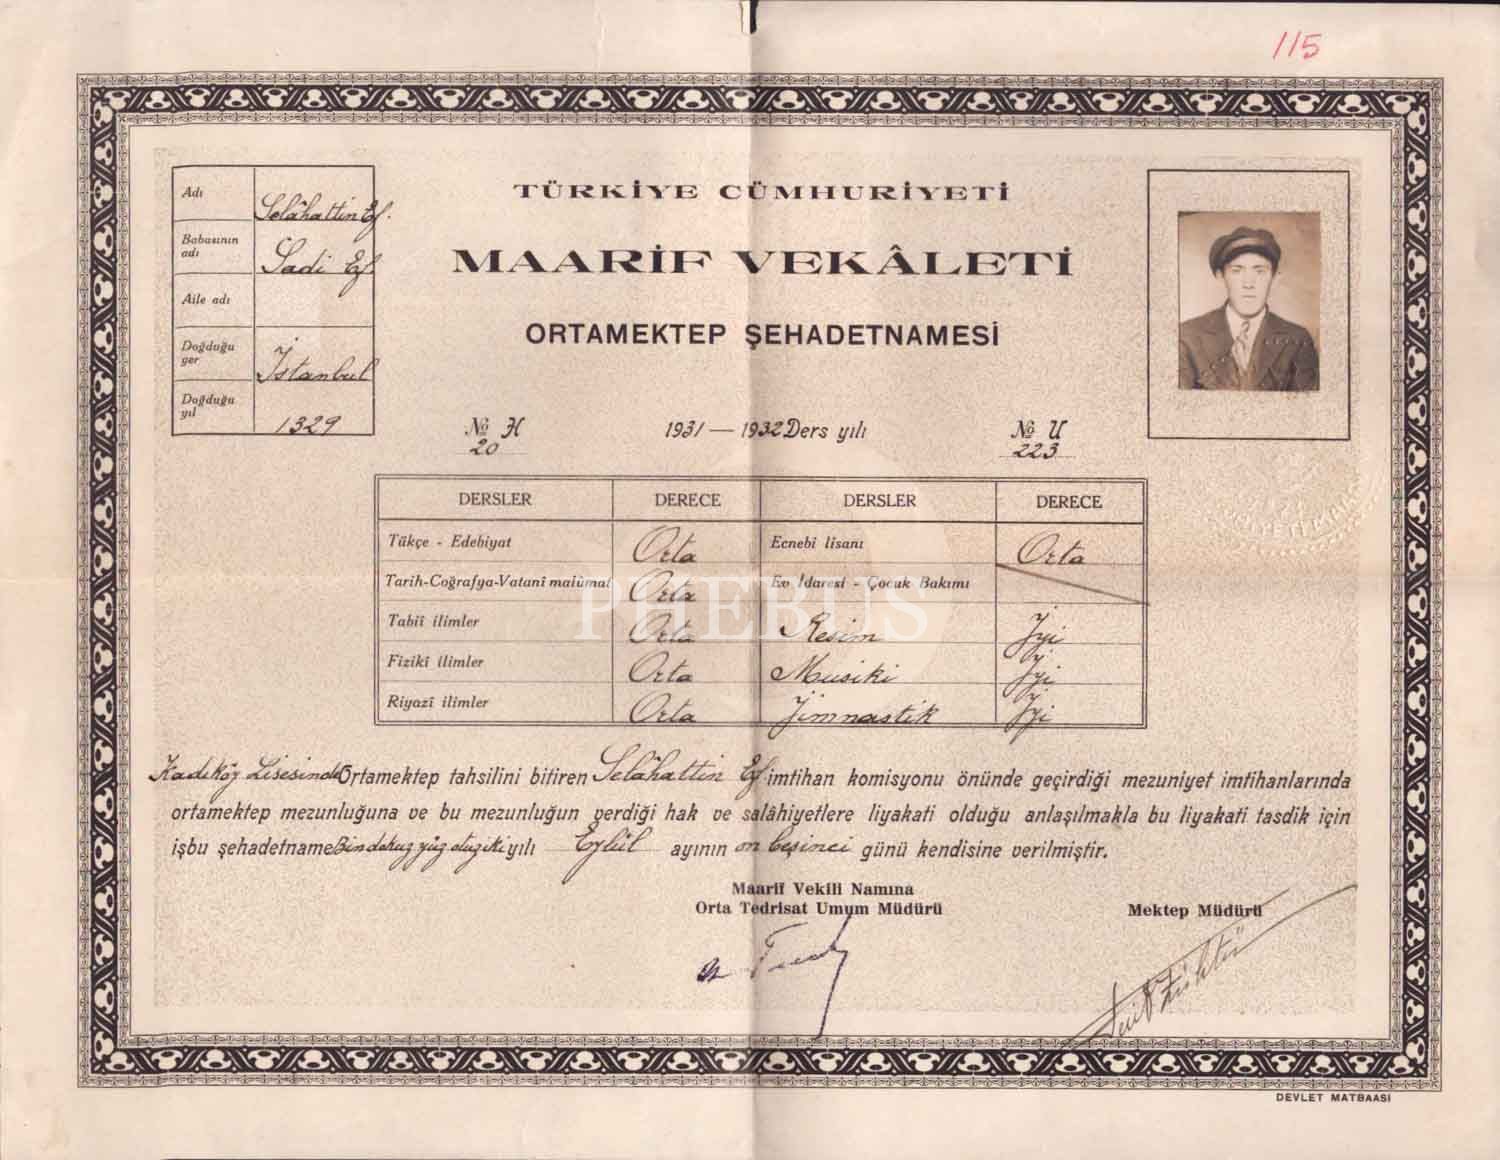 115
TÜRKİYE CÜMHURİYETİ
MAARİF VEKÂLETİ
ORTAMEKTEP ŞEHADETNAMESİ
Adı Selâhattin Ef.
Babasının adı Sadi Ef.
Aile adı
Doğduğu yer İstanbul
Doğduğu yıl 1329
№ H 20
1931 — 1932 Ders yılı
№ U 223
DERSLER DERECE DERSLER DERECE
Tükçe - Edebiyat Orta Ecnebi lisanı Orta
Tarih-Coğrafya-Vatanî malûmat Orta Ev İdaresi - Çocuk Bakımı
Tabiî ilimler Orta Resim İyi
Fizikî ilimler Orta Musiki İyi
Riyazî ilimler Orta Jimnastik İyi
PHEBUS
Kadıköy Lisesinde Ortamektep tahsilini bitiren Selâhattin Ef. imtihan komisyonu önünde geçirdiği mezuniyet imtihanlarında
ortamektep mezunluğuna ve bu mezunluğun verdiği hak ve salâhiyetlere liyakati olduğu anlaşılmakla bu liyakati tasdik için
işbu şehadetname Bin dokuz yüz otuz iki yılı Eylül ayının on beşinci günü kendisine verilmiştir.
Maarif Vekili Namına
Orta Tedrisat Umum Müdürü
Mektep Müdürü
DEVLET MATBAASI